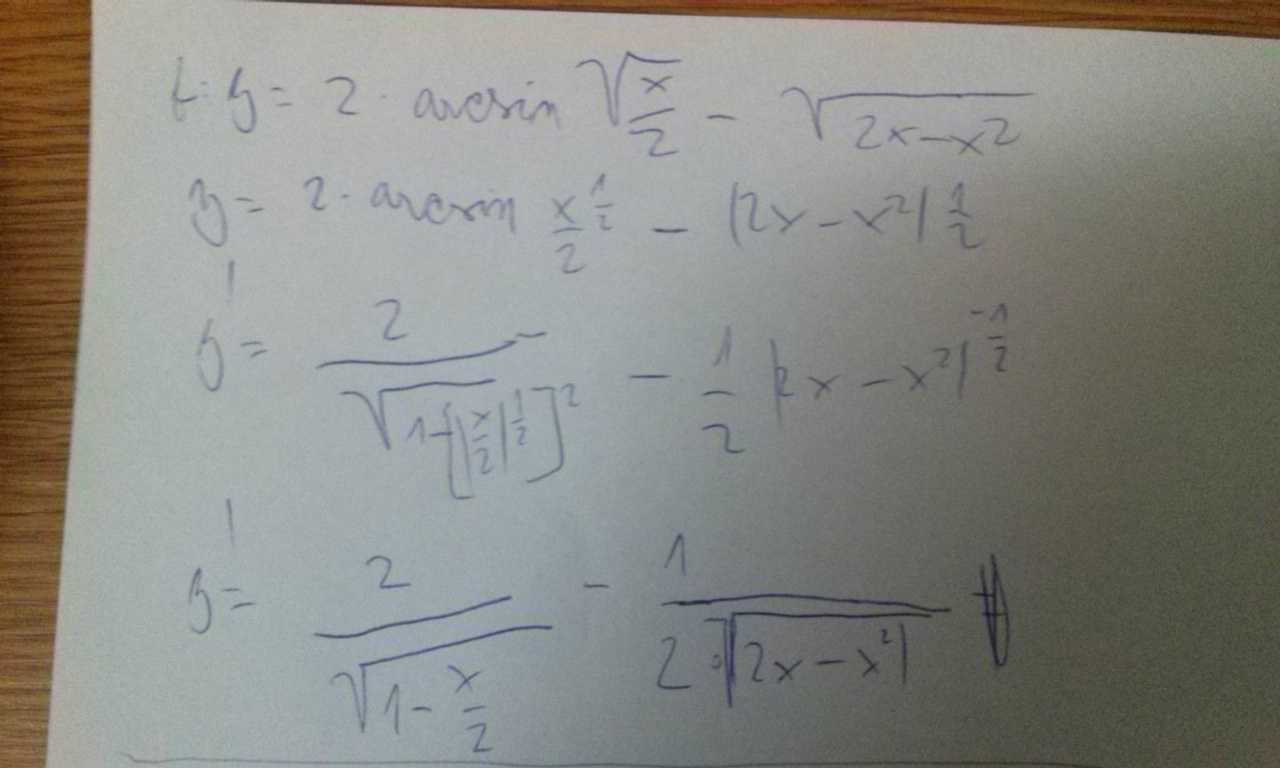 f: y = 2 · arcsin √(x/2) - √(2x-x²)
y = 2 · arcsin x/2^(1/2) - (2x-x²)^(1/2)
y' = 2/√(1-[(x/2)^(1/2)]²) - 1/2 (2x-x²)^(-1/2)
y' = 2/√(1-x/2) - 1/(2·√(2x-x²))